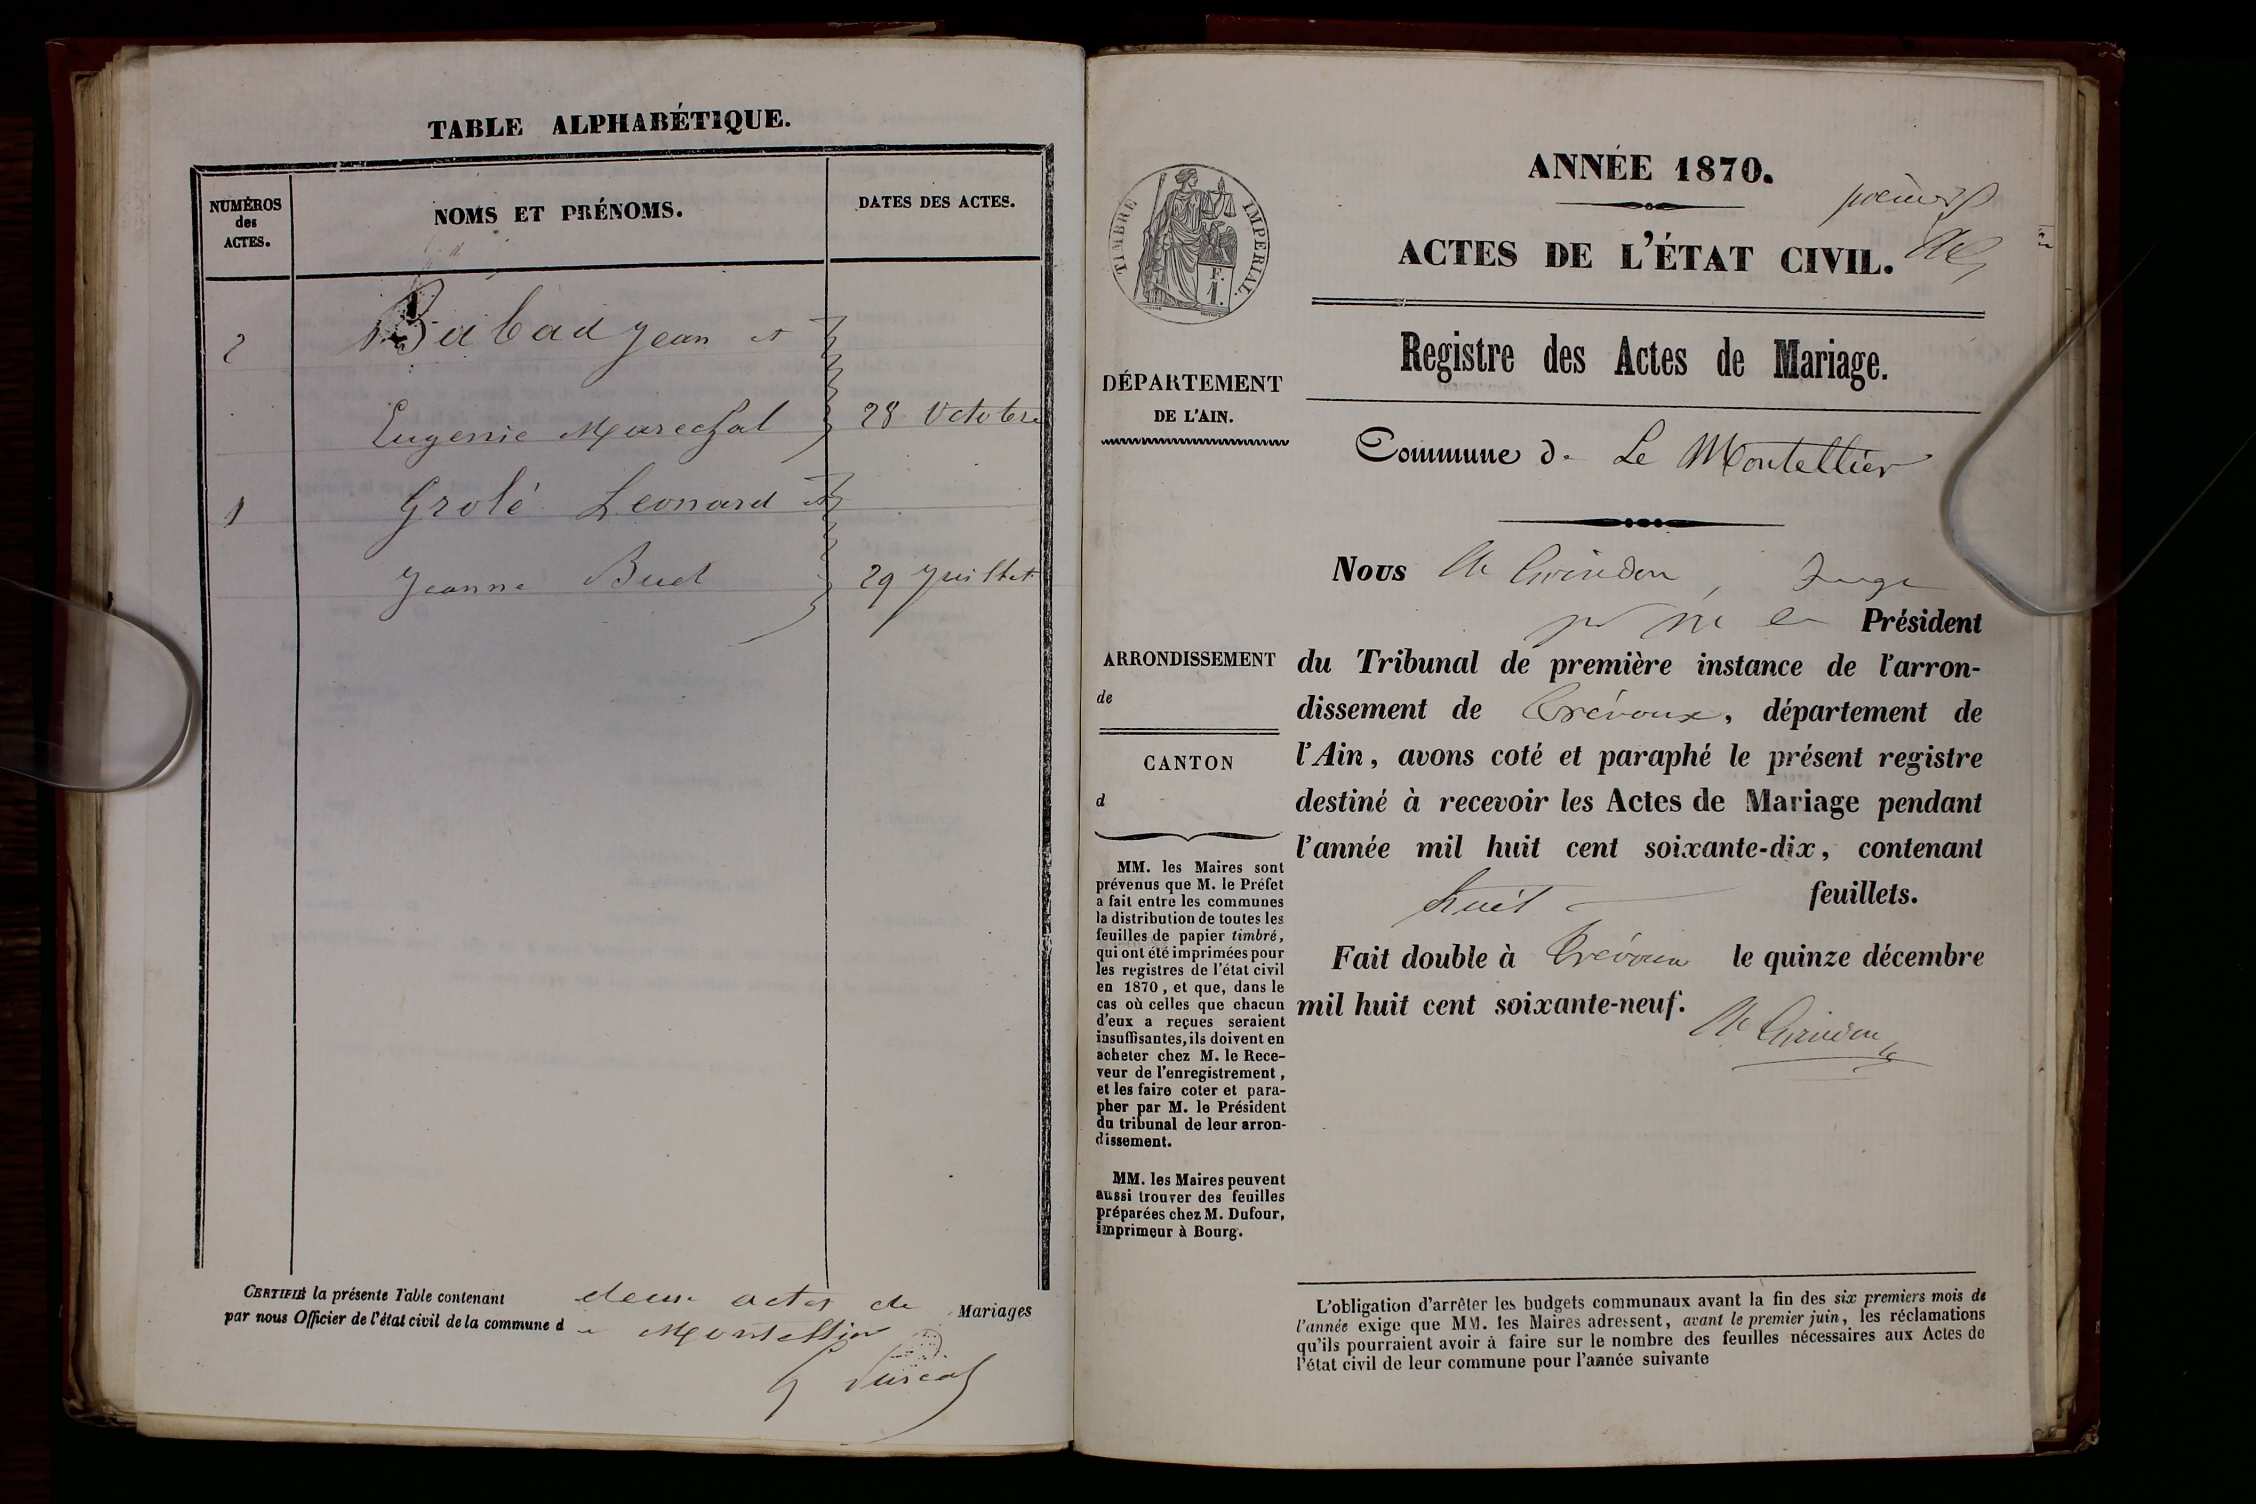 TABLE ALPHABÉTIQUE.
NUMÉROS
des
ACTES.
NOMS ET PRÉNOMS.
DATES DES ACTES.
2 Babad Jean et
Eugenie Marechal 28 Octobre
1 Grolé Leonard et
Jeanne Buet 29 Juillet
CERTIFIÉ la présente Table contenant deux actes de Mariages
par nous Officier de l'état civil de la commune d e Montellier
TIMBRE IMPERIAL.
F.
1.
DÉPARTEMENT
DE L'AIN.
ARRONDISSEMENT
de
CANTON
d
MM. les Maires sont
prévenus que M. le Préfet
a fait entre les communes
la distribution de toutes les
feuilles de papier timbré,
qui ont été imprimées pour
les registres de l'état civil
en 1870, et que, dans le
cas où celles que chacun
d'eux a reçues seraient
insuffisantes, ils doivent en
acheter chez M. le Rece-
veur de l'enregistrement,
et les faire coter et para-
pher par M. le Président
du tribunal de leur arron-
dissement.
MM. les Maires peuvent
aussi trouver des feuilles
préparées chez M. Dufour,
imprimeur à Bourg.
ANNÉE 1870.
premier
ACTES DE L'ÉTAT CIVIL.
Registre des Actes de Mariage.
Commune de Le Montellier
Nous Juge
Président
du Tribunal de première instance de l'arron-
dissement de Trévoux, département de
l'Ain, avons coté et paraphé le présent registre
destiné à recevoir les Actes de Mariage pendant
l'année mil huit cent soixante-dix, contenant
huit feuillets.
Fait double à Trévoux le quinze décembre
mil huit cent soixante-neuf.
L'obligation d'arrêter les budgets communaux avant la fin des six premiers mois de
l'année exige que MM. les Maires adressent, avant le premier juin, les réclamations
qu'ils pourraient avoir à faire sur le nombre des feuilles nécessaires aux Actes de
l'état civil de leur commune pour l'année suivante